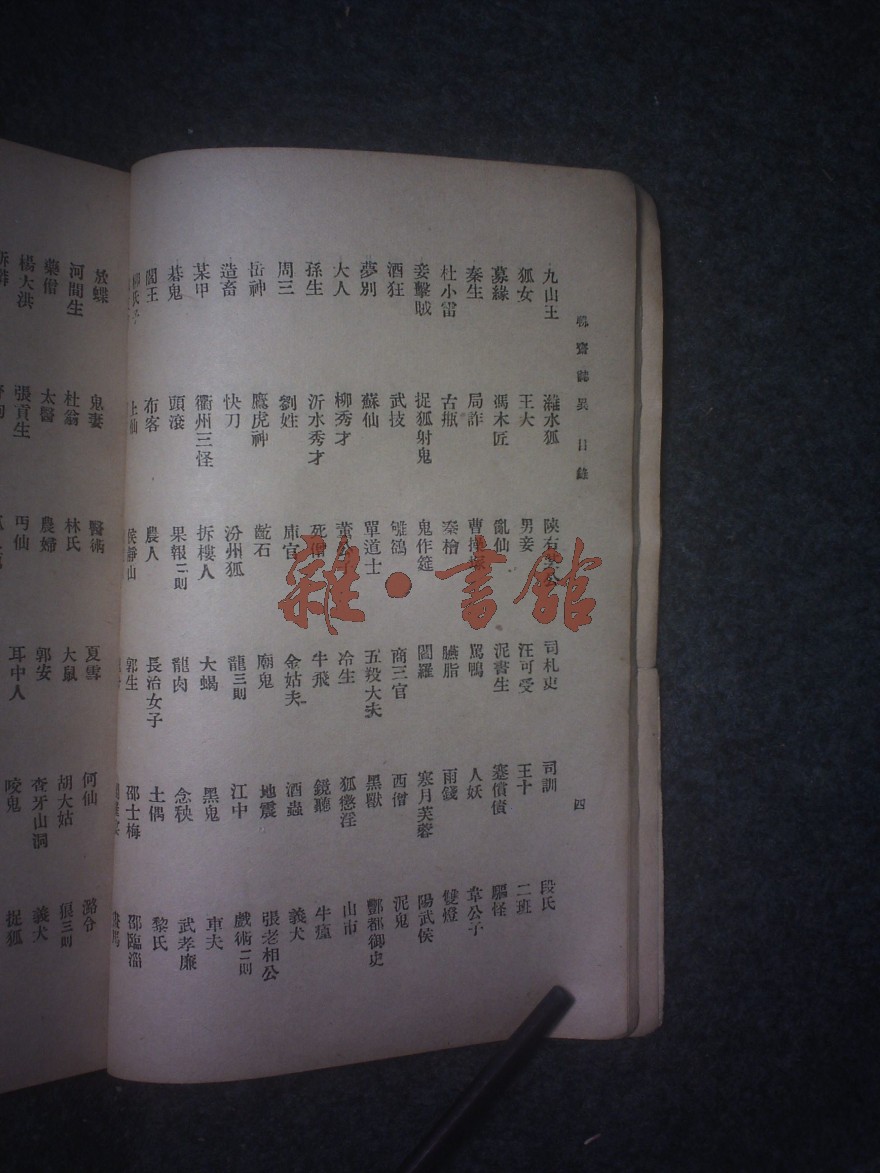 聊齋誌異 目錄 四
九山王 濰水狐 陝右某公 司札吏 司訓 段氏
狐女 王大 男妾 汪可受 王十 二班
募緣 馮木匠 亂仙 泥書生 蹇償債 驅怪
秦生 局詐 曹操塚 罵鴨 人妖 韋公子
杜小雷 古瓶 秦檜 臙脂 雨錢 雙燈
妾擊賊 捉狐射鬼 鬼作筵 閻羅 寒月芙蓉 陽武侯
酒狂 武技 鴝鵒 商三官 西僧 泥鬼
夢別 蘇仙 單道士 五羖大夫 黑獸 酆都御史
大人 柳秀才 董公子 冷生 狐懲淫 山市
孫生 沂水秀才 死僧 牛飛 鏡聽 牛癀
周三 劉姓 庫官 金姑夫 酒蟲 義犬
岳神 鷹虎神 齕石 廟鬼 地震 張老相公
造畜 快刀 汾州狐 龍三則 江中 戲術二則
某甲 衢州三怪 拆樓人 大蝎 黑鬼 車夫
碁鬼 頭滾 果報二則 龍肉 念秧 武孝廉
閻王 布客 農人 長治女子 土偶 黎氏
柳氏子 上仙 侯靜山 郭生 邵士梅 邵臨淄
放蝶 鬼妻 醫術 夏雪 何仙 潞令
河間生 杜翁 林氏 大鼠 胡大姑 狼三則
藥僧 太醫 農婦 郭安 查牙山洞 義犬
楊大洪 張貢生 丐仙 耳中人 咬鬼 捉狐
雜·書館